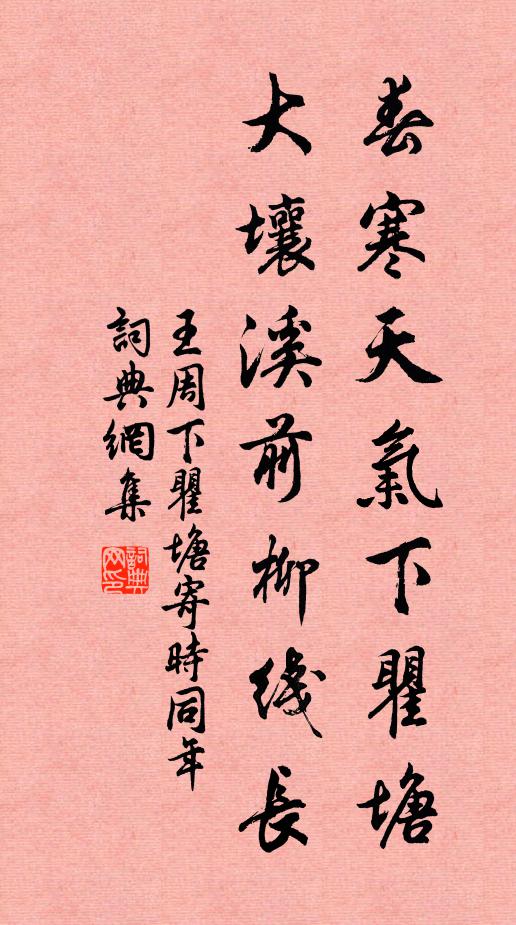 春寒天氣下瞿塘
大壤溪前柳线長
王周下瞿塘寄時同年
詞典網集
詞典网印